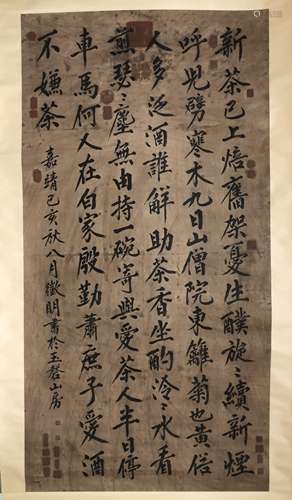 新茶已上焙舊架憂生醭旋〻續新煙
呼兒劈寒木九日山僧院東籬菊也黃俗
人多泛酒誰解助茶香坐酌泠〻水看
煎瑟〻塵無由持一碗寄與愛茶人半日停
車馬何人在白家殷勤蕭庶子愛酒
不嫌茶
嘉靖己亥秋八月徵明書於玉磬山房